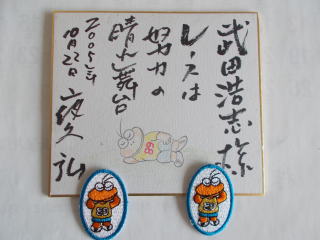 武田浩志様
レースは
努力の
晴れ舞台
2005年
10月22日